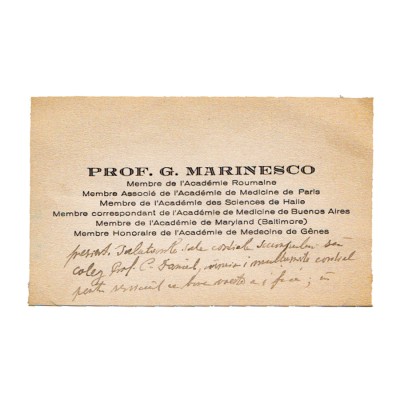 PROF. G. MARINESCO
Membre de l'Académie Roumaine
Membre Associé de l'Académie de Medicine de Paris
Membre de l'Académie des Sciences de Halle
Membre correspondant de l'Académie de Medicine de Buenos Aires
Membre de l'Académie de Maryland (Baltimore)
Membre Honoraire de l'Académie de Medecine de Gênes
cordiale scumpului său
coleg Prof. C. Daniel, cordial